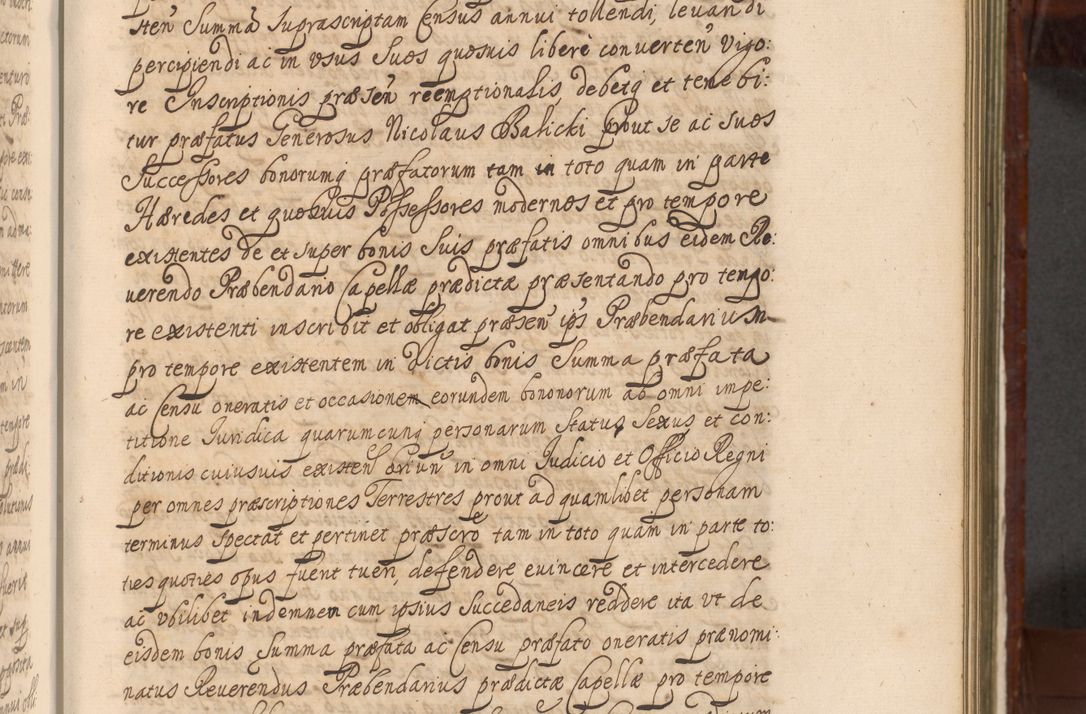 sten Summa Suprascriptam Census annui tollendi, levandi
percipiendi ac in usus Suos quosvis liberè converten Vigo:
re Inscriptionis præsen reemptionalis debetq et tenebi:
tur præfatus Generosus Nicolaus Balicki prout se ac Suos
Successores bonorumq præfatorum tam in toto quam in parte
Hæredes et quosvis Possessores modernos et pro tempore
existentes de et super bonis Suis præfatis omnibus eidem Re:
verendo Præbendario Capellæ prædictæ præsentando pro tempo:
re existenti inscribit et obligat præsen ips Præbendarium
pro tempore existentem in dictis bonis Summa præfata
ac Censu oneratis et occasionem eorundem bononorum ab omni impe:
titione Iuridica quarumcunq personarum Status Sexus et con:
ditionis cuiusvis existen oriun in omni Judicio et Officio Regni
per omnes præscriptiones Terrestres prout ad quamlibet personam
terminus spectat et pertinet præscro tam in toto quam in parte to:
ties quoties opus fuerit tueri, defendere evincere et intercedere
ac ubilibet indemnem cum ipsius Succedaneis reddere ita ut de
eisdem bonis Summa præfata ac Censu præfato oneratis prænomi:
natus Reverendus Præbendarius prædictæ Capellæ pro tempore